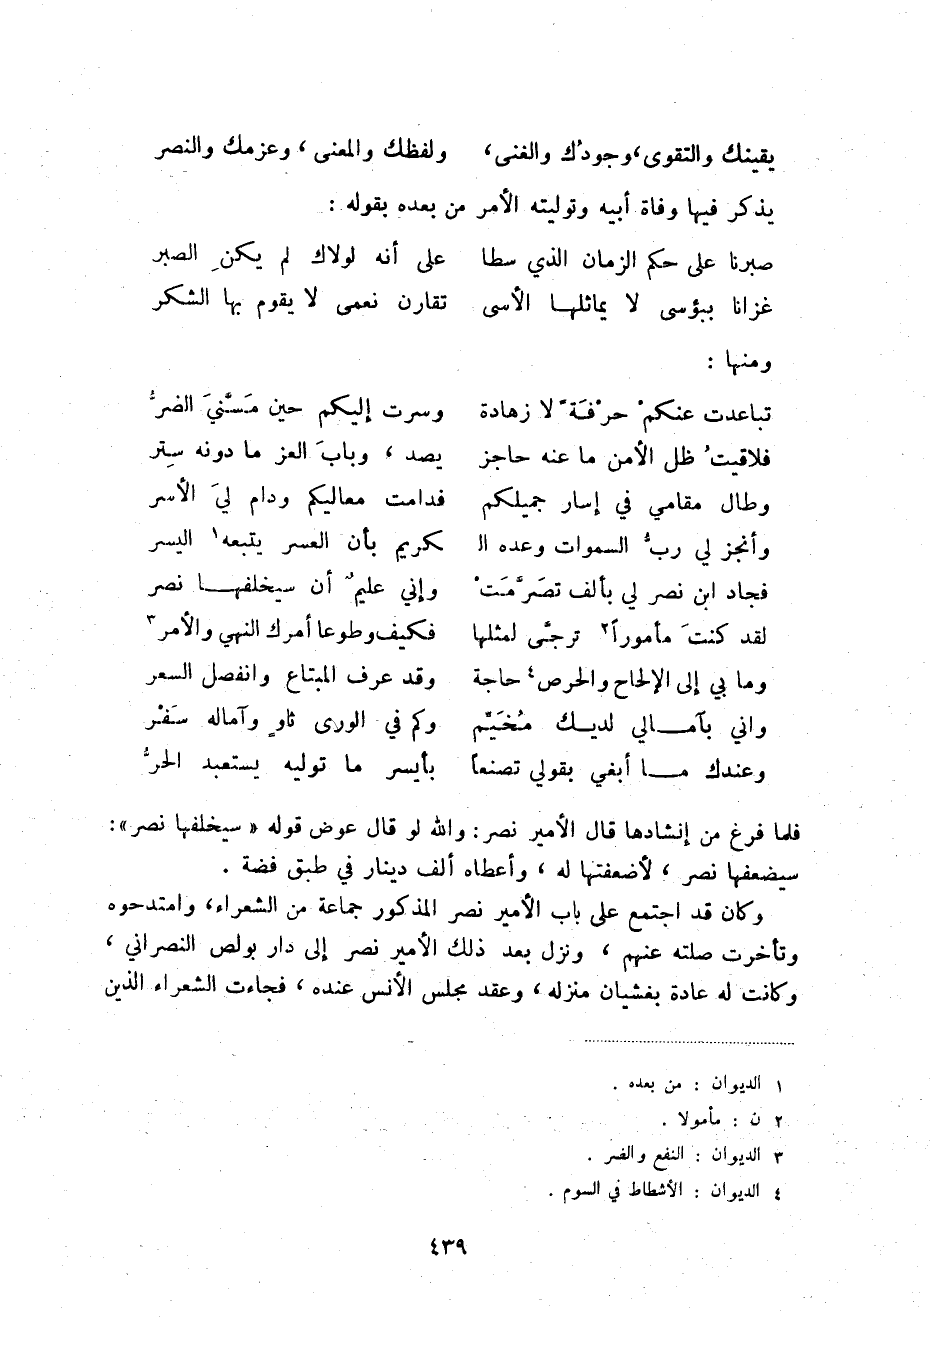 يقينك والتقوى، وجودُك والغنى، ولفظك والمعنى، وعزمك والنصر
يذكر فيها وفاة أبيه وتوليته الأمر من بعده بقوله :
صبرنا على حكم الزمان الذي سطا على أنه لولاك لم يكنِ الصبر
غزانا ببؤسى لا يماثلها الأسى تقارن نعمى لا يقوم بها الشكر
ومنها :
تباعدت عنكمْ حرْفَةً لا زهادة وسرت إليكم حين مَسَّنيَ الضرُّ
فلاقيتُ ظل الأمن ما عنه حاجز يصد ، وبابَ العز ما دونه سِتر
وطال مقامي في إسار جميلكم فدامت معاليكم ودام ليَ الأسر
وأنجز لي ربُّ السموات وعده الـ كريم بأن العسر يتبعه١ اليسر
فجاد ابن نصر لي بألف تصَرَّمَتْ وإني عليمٌ أن سيخلفها نصر
لقد كنتَ مأموراً٢ ترجَّى لمثلها فكيف وطوعا أمرك النهي والأمر٣
وما بي إلى الإلحاح والحرص٤ حاجة وقد عرف المبتاع وانفصل السعر
واني بآمالي لديك مُخَيّم وكم في الورى ثاوٍ وآماله سَفْر
وعندك ما أبغي بقولي تصنعاً بأيسر ما توليه يستعبد الحرُّ
فلما فرغ من إنشادها قال الأمير نصر : والله لو قال عوض قوله « سيخلفها نصر » :
سيضعفها نصر ، لأضعفتها له ، وأعطاه ألف دينار في طبق فضة .
وكان قد اجتمع على باب الأمير نصر المذكور جماعة من الشعراء، وامتدحوه
وتأخرت صلته عنهم ، ونزل بعد ذلك الأمير نصر إلى دار بولص النصراني ،
وكانت له عادة بغشيان منزله ، وعقد مجلس الأنس عنده ، فجاءت الشعراء الذين
١ الديوان : من بعده .
٢ ن : مأمولا .
٣ الديوان : النفع والضر .
٤ الديوان : الأشطاط في السوم .
٤٣٩